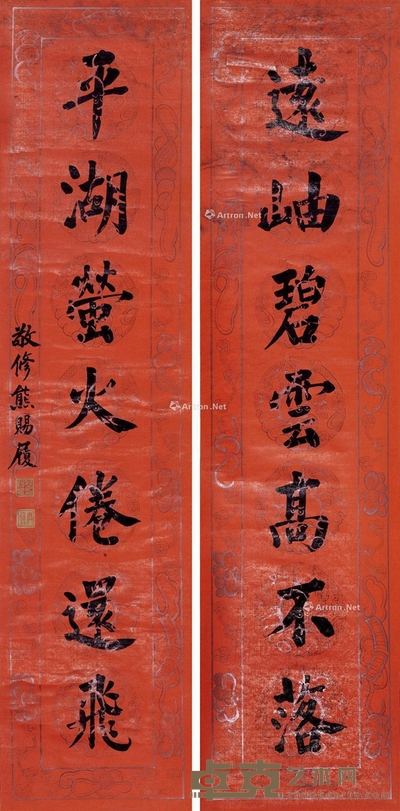 遠岫碧雲高不落
平湖螢火倦還飛
敬修熊賜履
Artron.Net
Artron.Net
Artron.Net
卓克艺术网